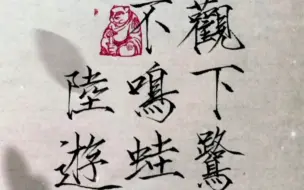 觀下鷺
不鳴蛙
陸遊